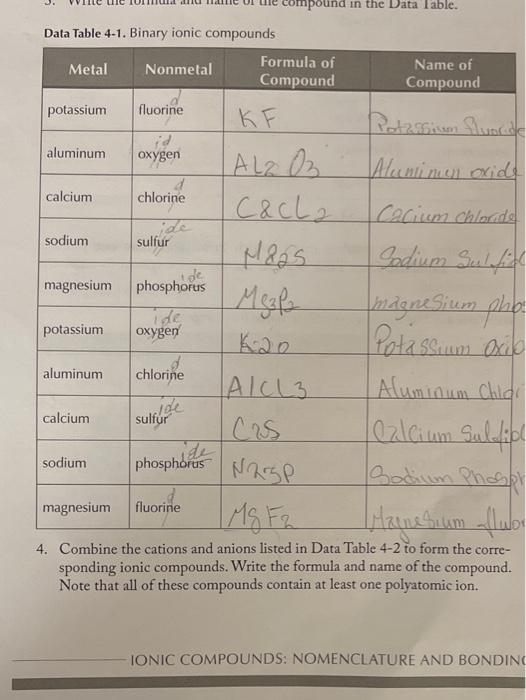 3. Write the formula and name of the compound in the Data Table.
Data Table 4-1. Binary ionic compounds
Metal Nonmetal Formula of Compound Name of Compound
potassium fluorine d KF Potassium fluoride
aluminum oxygen id AL2 O3 Aluminun oxide
calcium chlorine d CaCL2 Calcium chloride
sodium sulfur ide Na2S Sodium Sulfid
magnesium phosphorus ide Mg3P2 magnesium phos
potassium oxygen ide K2O Potassium Oxid
aluminum chlorine d AlCL3 Aluminum Chlor
calcium sulfur ide CaS Calcium Sulfid
sodium phosphorus ide Na3P Sodium Phosph
magnesium fluorine d MgF2 Magnesium fluor
4. Combine the cations and anions listed in Data Table 4-2 to form the corre-
sponding ionic compounds. Write the formula and name of the compound.
Note that all of these compounds contain at least one polyatomic ion.
IONIC COMPOUNDS: NOMENCLATURE AND BONDING